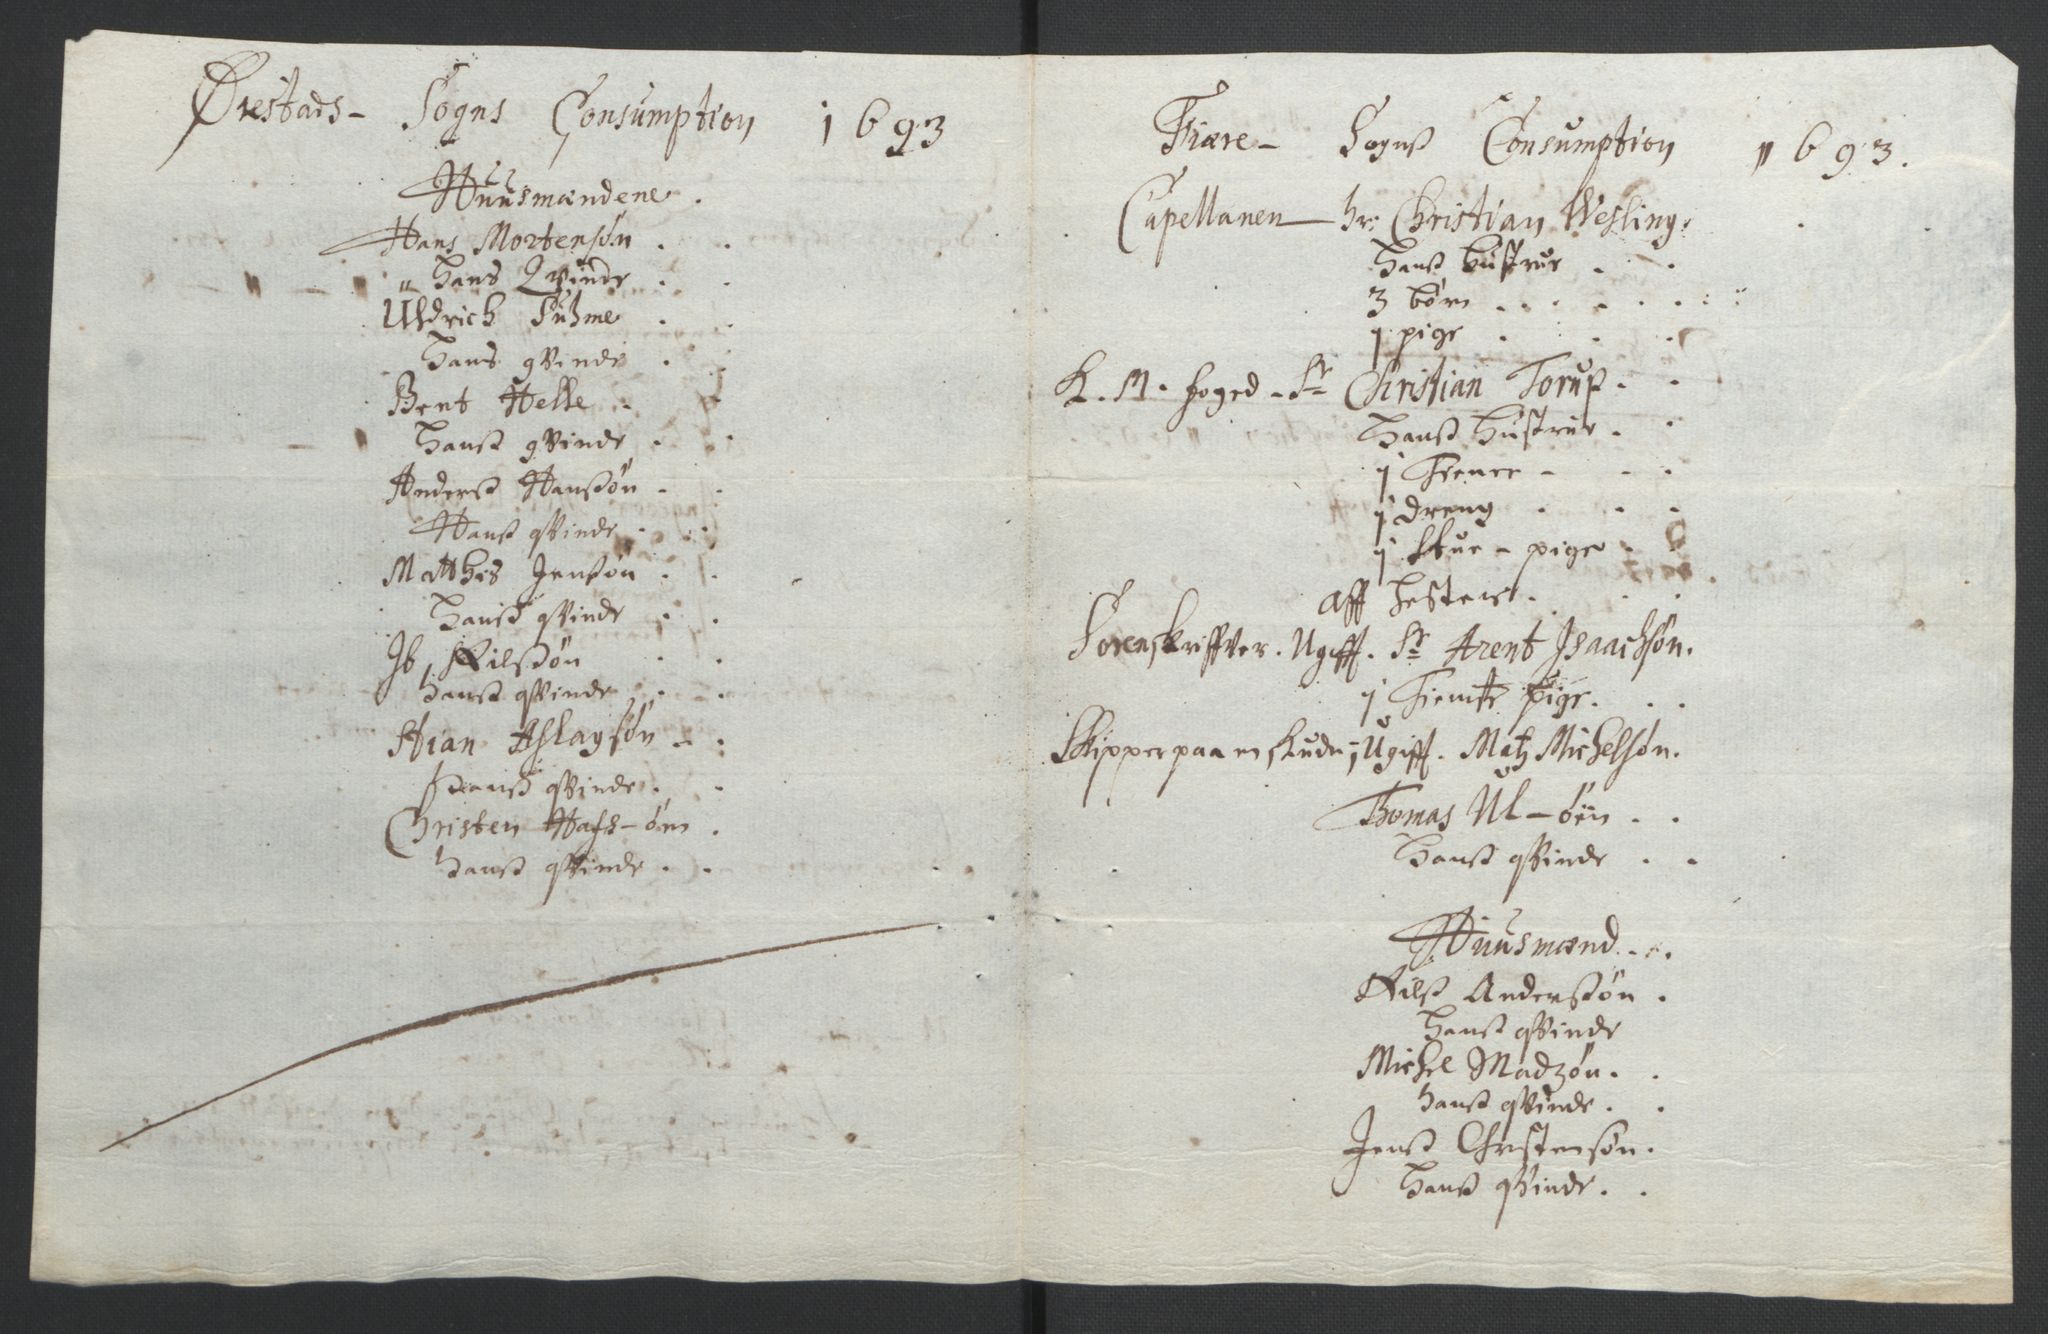 Ørestads- Sogns Consumption 1693
Huusmændene.
Hans Mortensøn
Hans Qvinde
Uldrich Suhme
hans qvinde
Bent Helle
hanß qvinde
Anderß Hanßøn
Hanß qvinde
Matthis Jenßøn
hanß qvinde
Ib Nilßøn
hanß qvinde
Stian Aslagsøn
hanß qvinde
Christen
hanß qvinde
Fiære- Sognß Consumption 1693.
Capellanen hr: Christian Wesling.
hanß hustrue
3 børn
1 pige
K. M. foged - Sr Christian Torup.
hanß hustrue
1 Tiener
1 dreng
1 stue-pige
aff hester
Sorenskriffver. Ugiff. Sr Arent Isaachsøn.
1 Tieniste pige.
Skipper paa en skude, Ugiff. Matz Michelsøn.
Thomas Ul-øen
hanß qvinde
Huusmænd
Nilß Anderßøn
hanß qvinde
Michel Madzøn.
hanß qvinde.
Jenß Christensøn.
hanß qvinde.